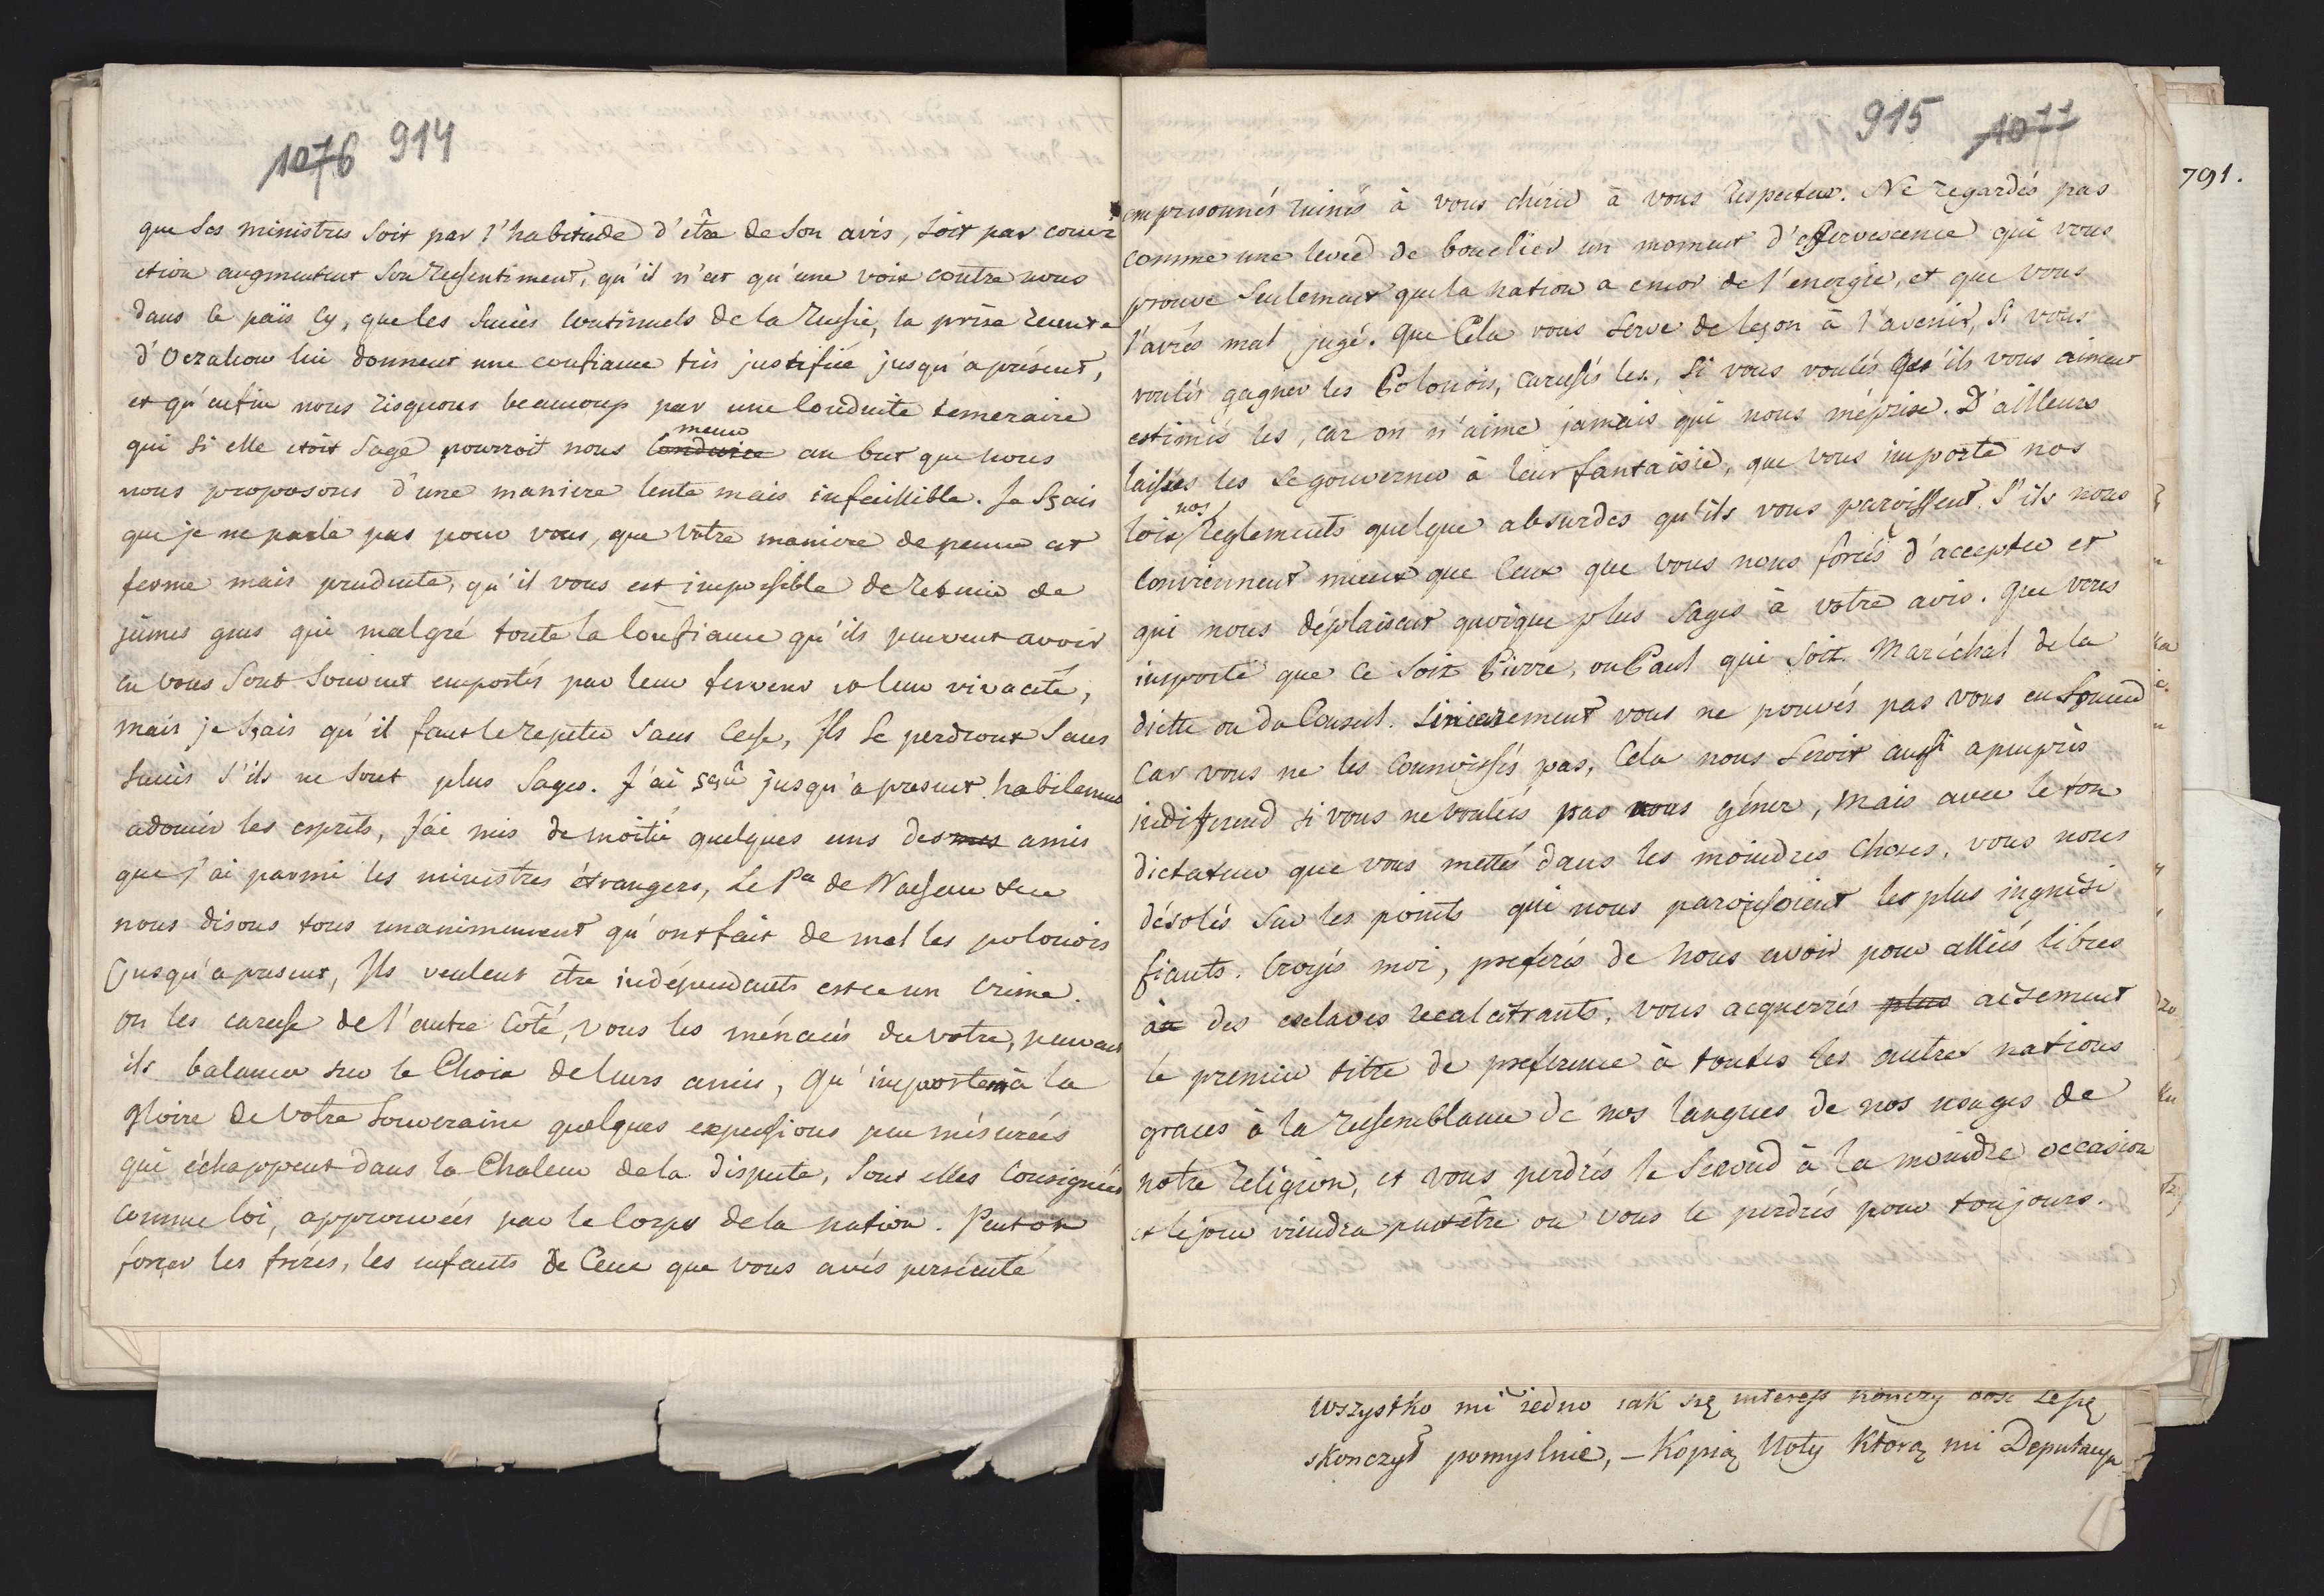 1076 914
que ses ministres soit par l'habitude d'être de son avis, soit par convi
ction augmentent son ressentiment, qu'il n'est qu'une voix contre nous
dans ce païs cy, que les succès continuels de la Russie, la prise recente
d'Oczakow lui donnent une confiance très justifiée jusqu'à présent,
et qu'enfin nous risquons beaucoup par une conduite temeraire
qui si elle etoit sage pourroit nous conduire mener au but que nous
nous proposons d'une maniere lente mais infaillible. Je sçais
que je ne parle pas pour vous, que votre maniere de penser est
ferme mais prudente, qu'il vous est impossible de retenir de
jeunes gens qui malgré toute la confiance qu'ils peuvent avoir
en vous sont souvent emportés par leur ferveur et leur vivacité,
mais je sçais qu'il faut le repeter sans cesse, Ils se perdront sans
succès s'ils ne sont plus sages. J'ai sçû jusqu'a present habilement
adoucir les esprits, J'ai mis de moitié quelques uns des mes amis
que j'ai parmi les ministres étrangers, le Pce de Nassau etc
nous disons tous unanimement qu'ont fait de mal les polonois
Jusqu'a present, Ils veulent être indépendants est ce un crime.
on les caresse de l'autre côté, vous les ménacés du votre, peuvent
ils balancer sur le choix de leurs amis, qu'importent à la
gloire de votre souveraine quelques expressions peu mésurées
qui échappent dans la chaleur de la dispute, sont elles consignées
comme loi, approuvées par le corps de la nation. Peut on
forcer les fréres, les enfants de ceux que vous avés persécuté
915 1077
emprisonnés ruinés à vous chérir à vous respecter. Ne regardés pas
comme une levée de bouclier un moment d'effervescence qui vous
prouve seulement que la nation a encor de l'energie, et que vous
l'aviés mal jugé. que cela vous serve de leçon à l'avenir, si vous
voulés gagner les Polonois, caressés les, si vous voulés qu'ils vous aiment
estimés les, car on n'aime jamais qui nous méprise. D'ailleurs
laissés les se gouverner à leur fantaisie, que vous importe nos
loix nos reglements quelque absurdes qu'ils vous paroissent. S'ils nous
conviennent mieux que ceux que vous nous forcés d'accepter et
qui nous déplaisent quoique plus sages à votre avis. que vous
importe que ce soit Pierre, ou Paul qui soit Maréchal de la
diette ou du Conseil. sincerement vous ne pouvés pas vous en soucier
car vous ne les connoissés pas, cela nous seroit aussi apeuprès
indifferend si vous ne vouliés pas nous géner, mais avec le ton
dictateur que vous mettés dans les moindres choses, vous nous
désolés sur les points qui nous paroissoient les plus insignifi
fiants. Croyés moi, preferés de nous avoir pour alliés libres
à des esclaves recalcitrants, vous acquerrés plus aisement
le premier titre de preference à toutes les autres nations
graces à la ressemblance de nos langues de nos usages de
notre religion, et vous perdrés le second à la moindre occasion
et le jour viendra peutetre ou vous le perdrés pour toujours.
791.
Wszystko mi iedno iak się interess kończy dość że się
skonczył pomyslnie, – Kopią Noty Ktorą mi Deputacya